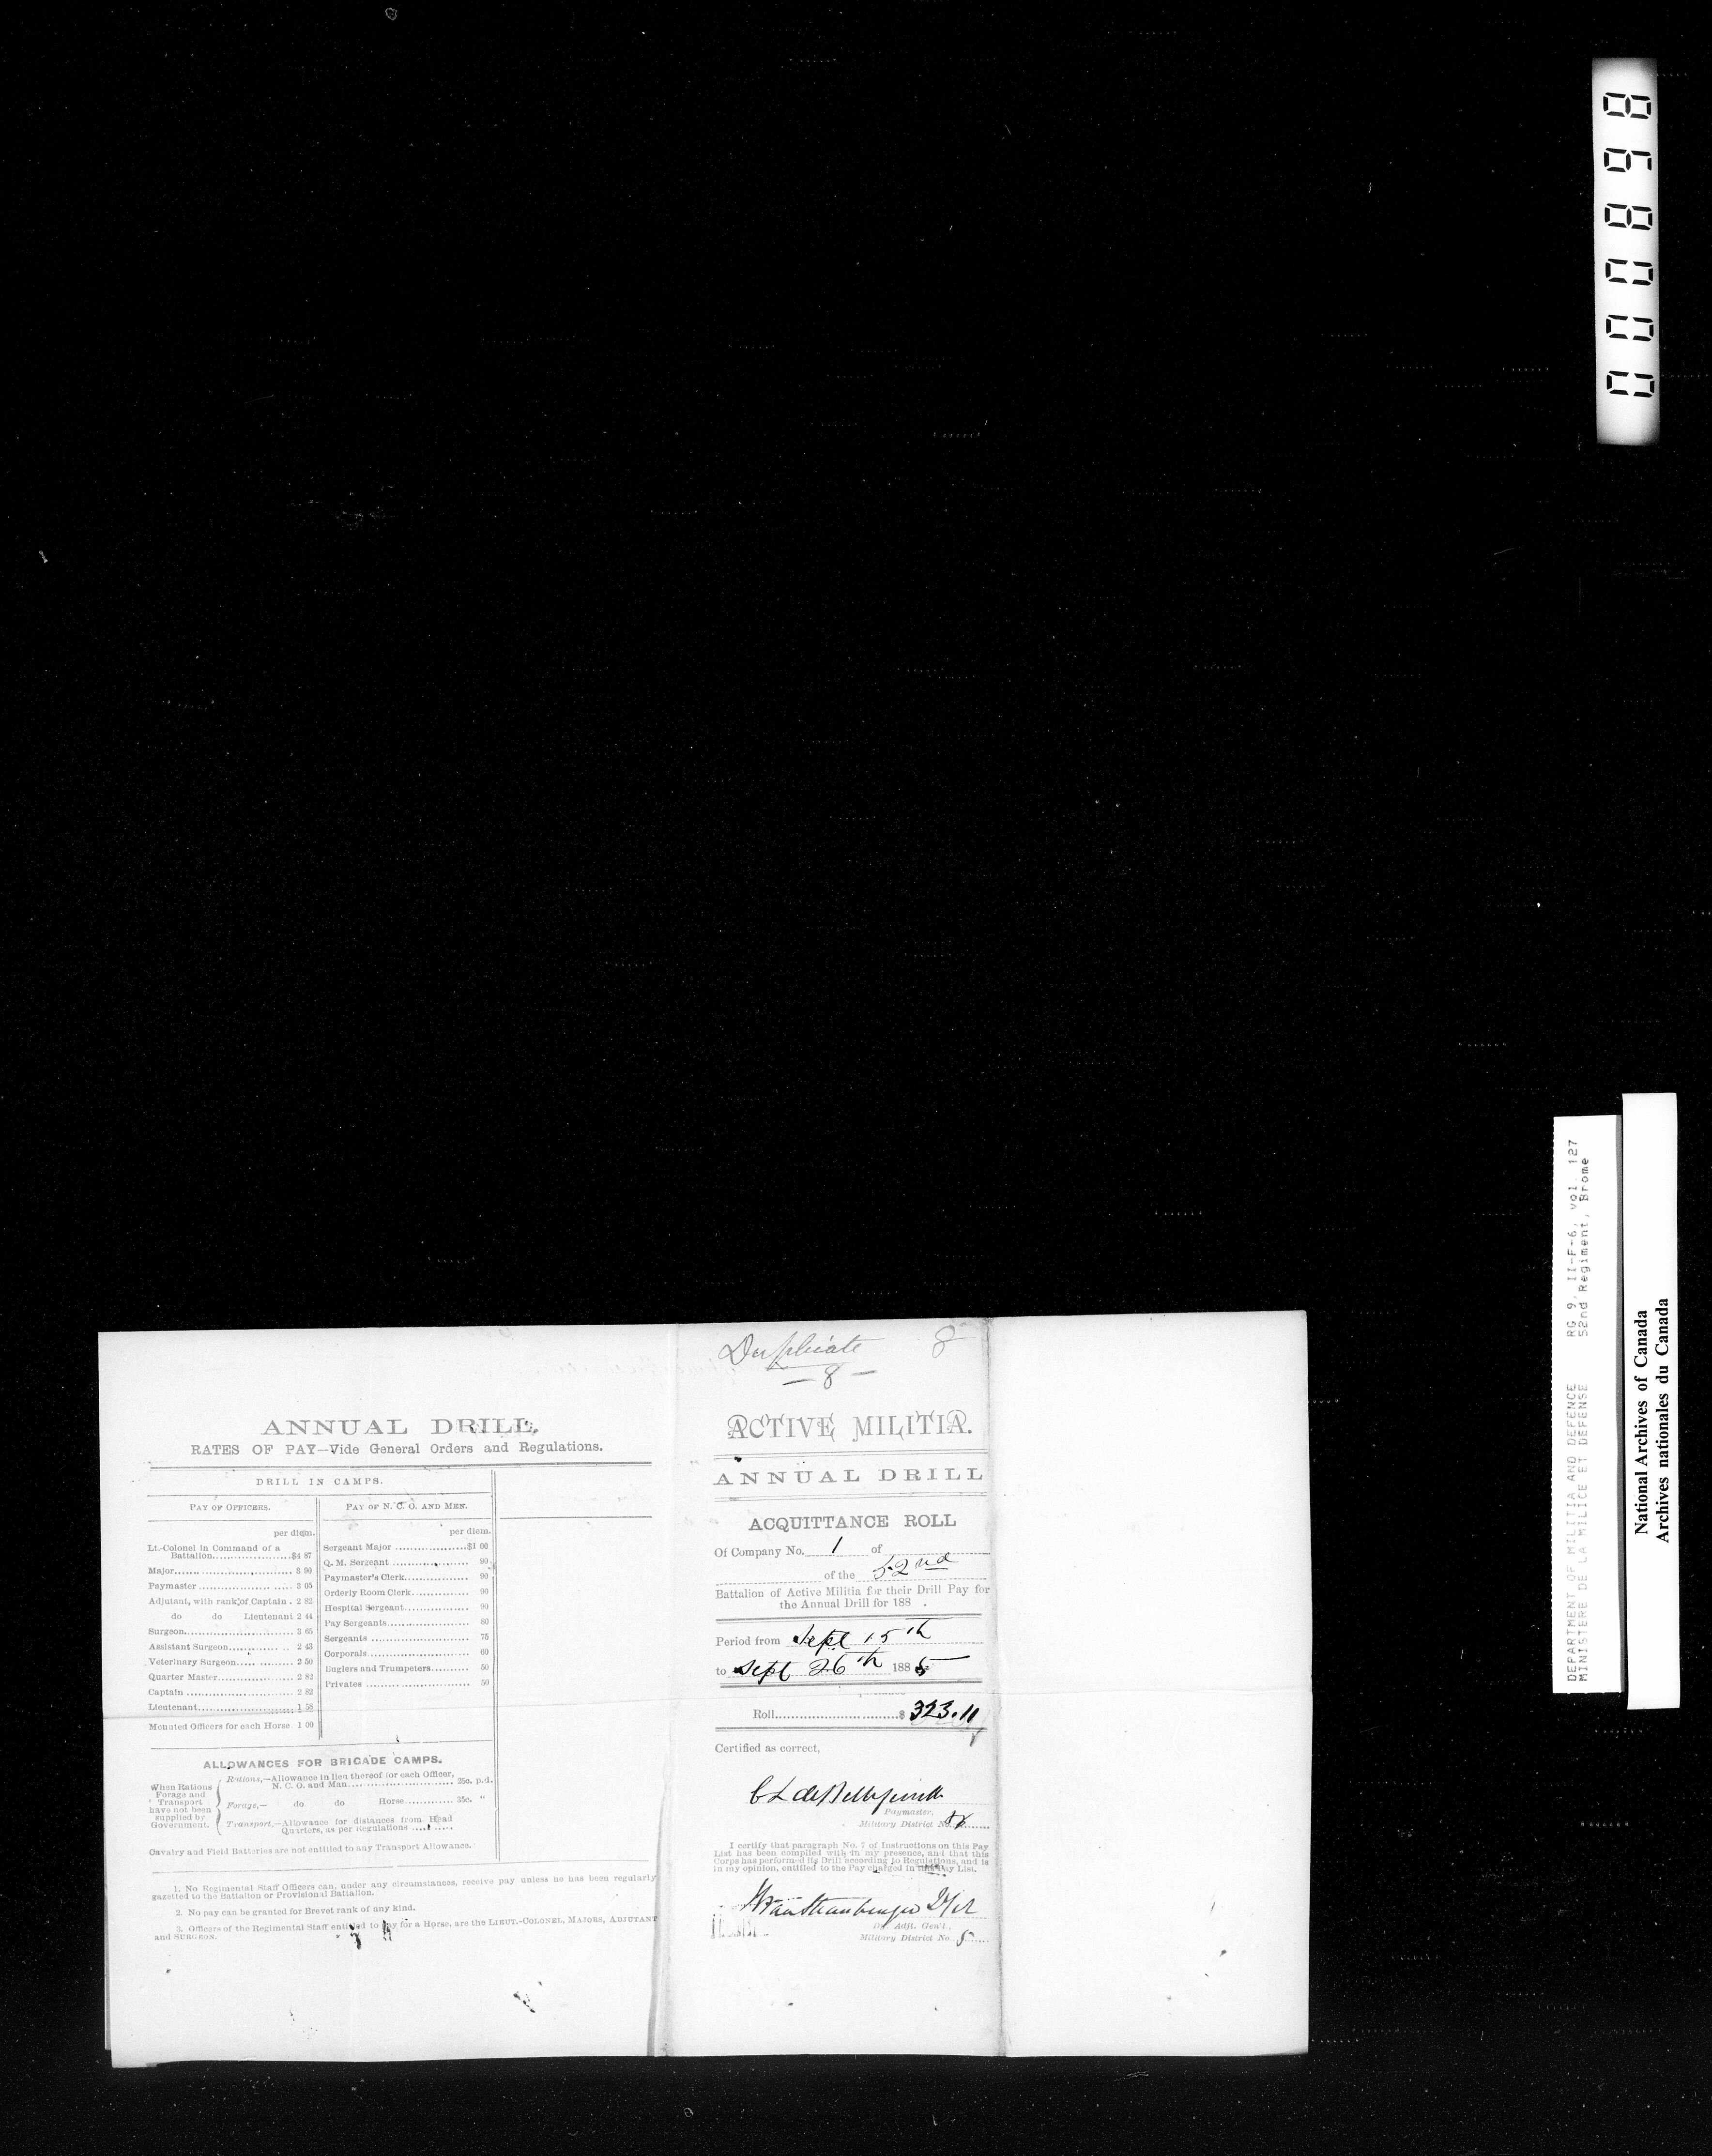 000898
DEPARTMENT OF MILITIA AND DEFENCE RG 9, II-F-6, vol. 127
MINISTERE DE LA MILICE ET DEFENSE 52nd Regiment, Brome
National Archives of Canada
Archives nationales du Canada
ANNUAL DRILL.
RATES OF PAY—Vide General Orders and Regulations.
DRILL IN CAMPS.
PAY OF OFFICERS.
per diem.
Lt.-Colonel in Command of a
Battalion..................$4 87
Major............................ 3 90
Paymaster ...................... 3 05
Adjutant, with rank of Captain . 2 82
do do Lieutenant 2 44
Surgeon............................ 3 65
Assistant Surgeon............ .. 2 43
Veterinary Surgeon..... ......... 2 50
Quarter Master.................. 2 82
Captain ........................... 2 82
Lieutenant........................ 1 58
Mounted Officers for each Horse 1 00
PAY OF N. C. O. AND MEN.
per diem.
Sergeant Major ..................$1 00
Q. M. Sergeant .................. 90
Paymaster's Clerk............... 90
Orderly Room Clerk............ 90
Hospital Sergeant............... 90
Pay Sergeants.................... 80
Sergeants ........................ 75
Corporals......................... 60
Buglers and Trumpeters......... 50
Privates .......................... 50
ALLOWANCES FOR BRIGADE CAMPS.
When Rations
Forage and
Transport
have not been
supplied by
Government.
Rations,—Allowance in lieu thereof for each Officer,
N. C. O. and Man........................... 25c. p.d.
Forage,— do do Horse............ 35c. "
Transport,—Allowance for distances from Head
Quarters, as per Regulations .........
Cavalry and Field Batteries are not entitled to any Transport Allowance.
1. No Regimental Staff Officers can, under any circumstances, receive pay unless he has been regularly
gazetted to the Battalion or Provisional Battalion.
2. No pay can be granted for Brevet rank of any kind.
3. Officers of the Regimental Staff entitled to pay for a Horse, are the LIEUT.-COLONEL, MAJORS, ADJUTANT
and SURGEON.
Duplicate 8
— 8 —
ACTIVE MILITIA.
ANNUAL DRILL
ACQUITTANCE ROLL
Of Company No. 1 of
of the 52nd
Battalion of Active Militia for their Drill Pay for
the Annual Drill for 188 .
Period from Sept 15th
to Sept 26th 1885
Roll..............................$ 323.11
Certified as correct,
Paymaster,
Military District No.
I certify that paragraph No. 7 of Instructions on this Pay
List has been complied with in my presence, and that this
Corps has performed its Drill according to Regulations, and is
in my opinion, entitled to the Pay charged in this Pay List.
Dy. Adjt. Gen'l.,
Military District No. 5